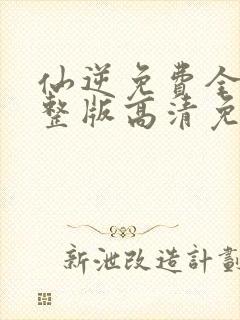 仙逆免費全
整版高清免
新泄改造計劃